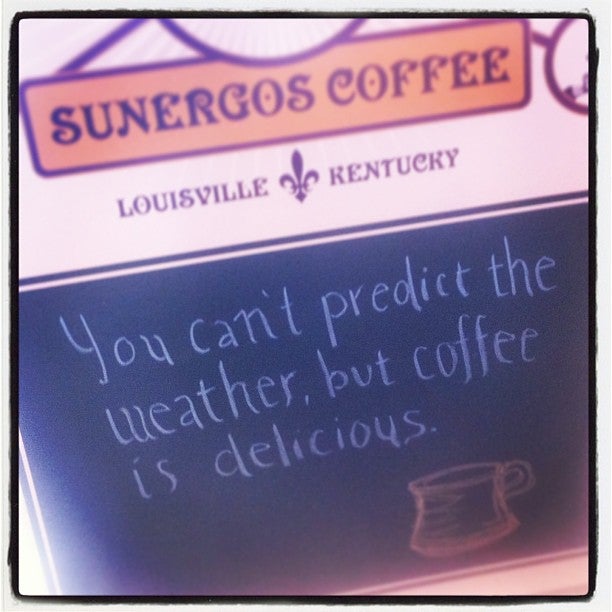 SUNERGOS COFFEE
LOUISVILLE KENTUCKY
You can't predict the
weather, but coffee
is delicious.